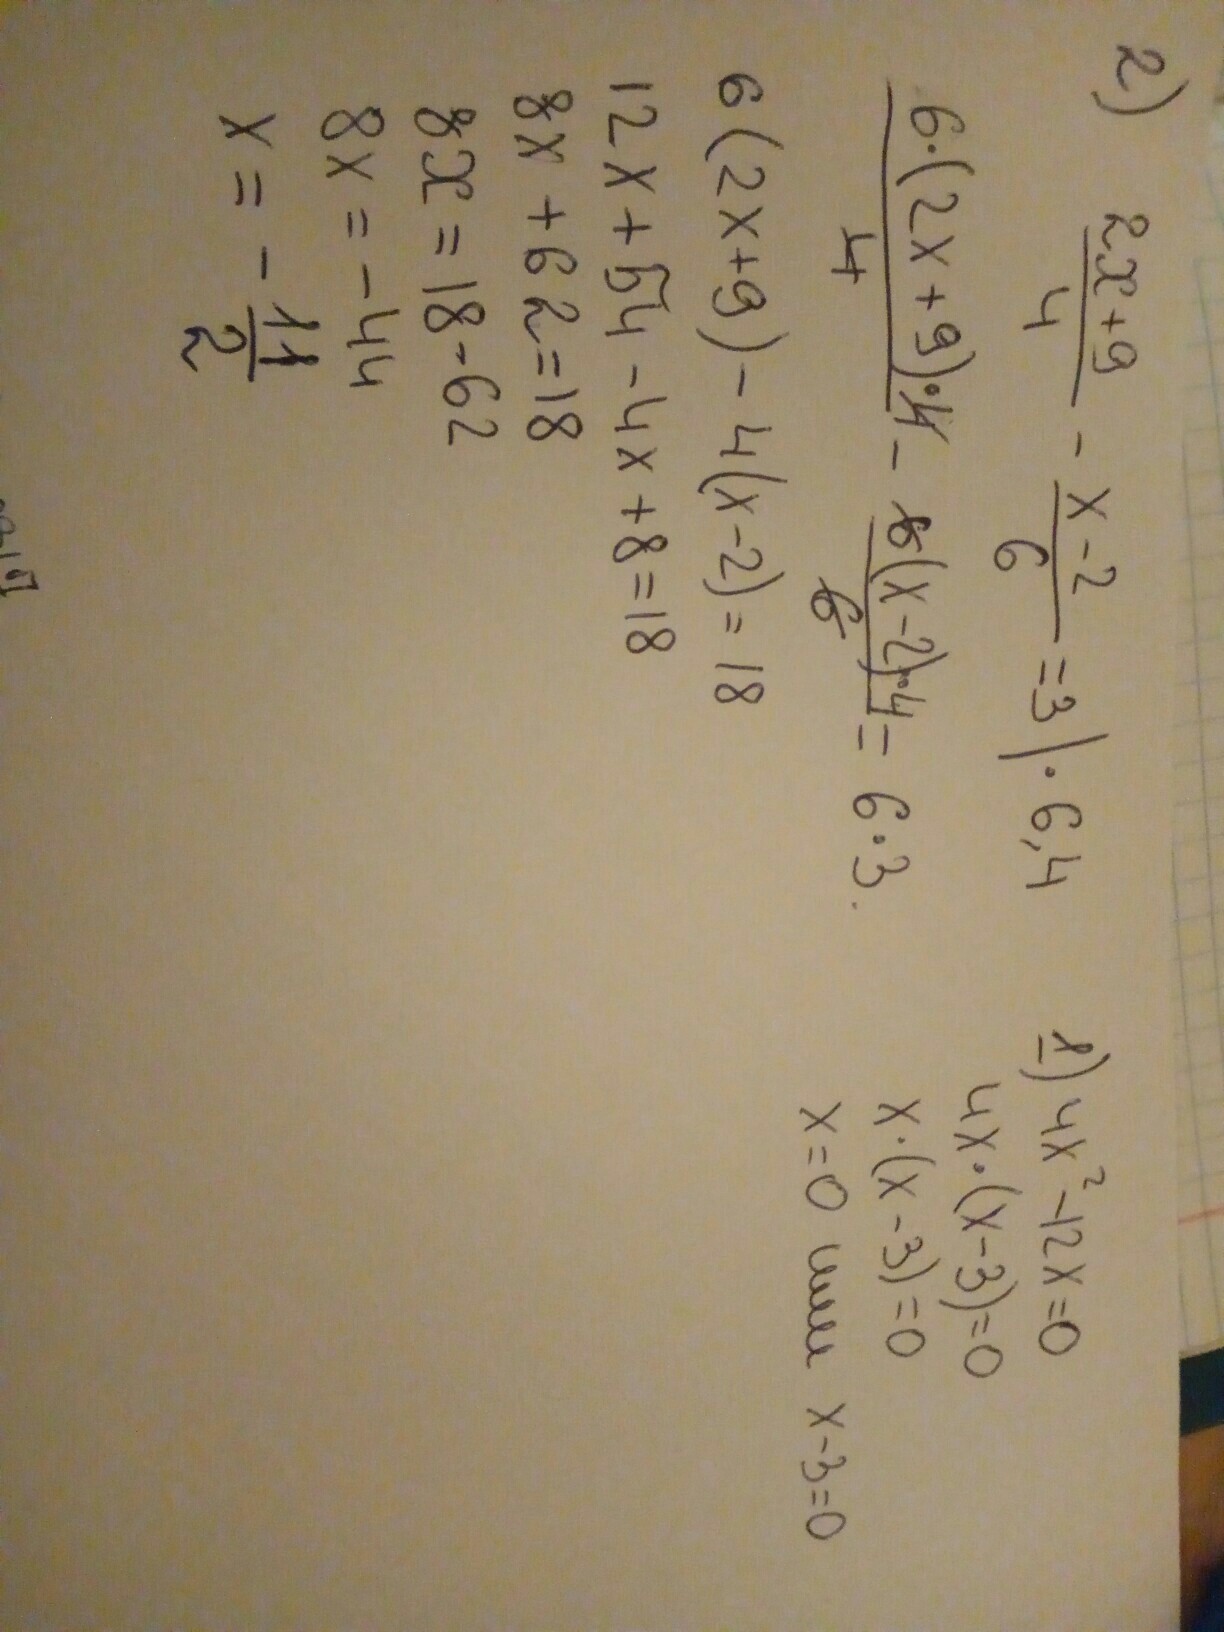 2) (2x+9)/4 - (x-2)/6 = 3 | · 6,4
6·(2x+9)·4/4 - 6(x-2)·4/6 = 6·3.
6(2x+9) - 4(x-2) = 18
12x + 54 - 4x + 8 = 18
8x + 62 = 18
8x = 18 - 62
8x = -44
x = - 11/2
1) 4x² - 12x = 0
4x·(x-3) = 0
x·(x-3) = 0
x = 0 или x-3=0